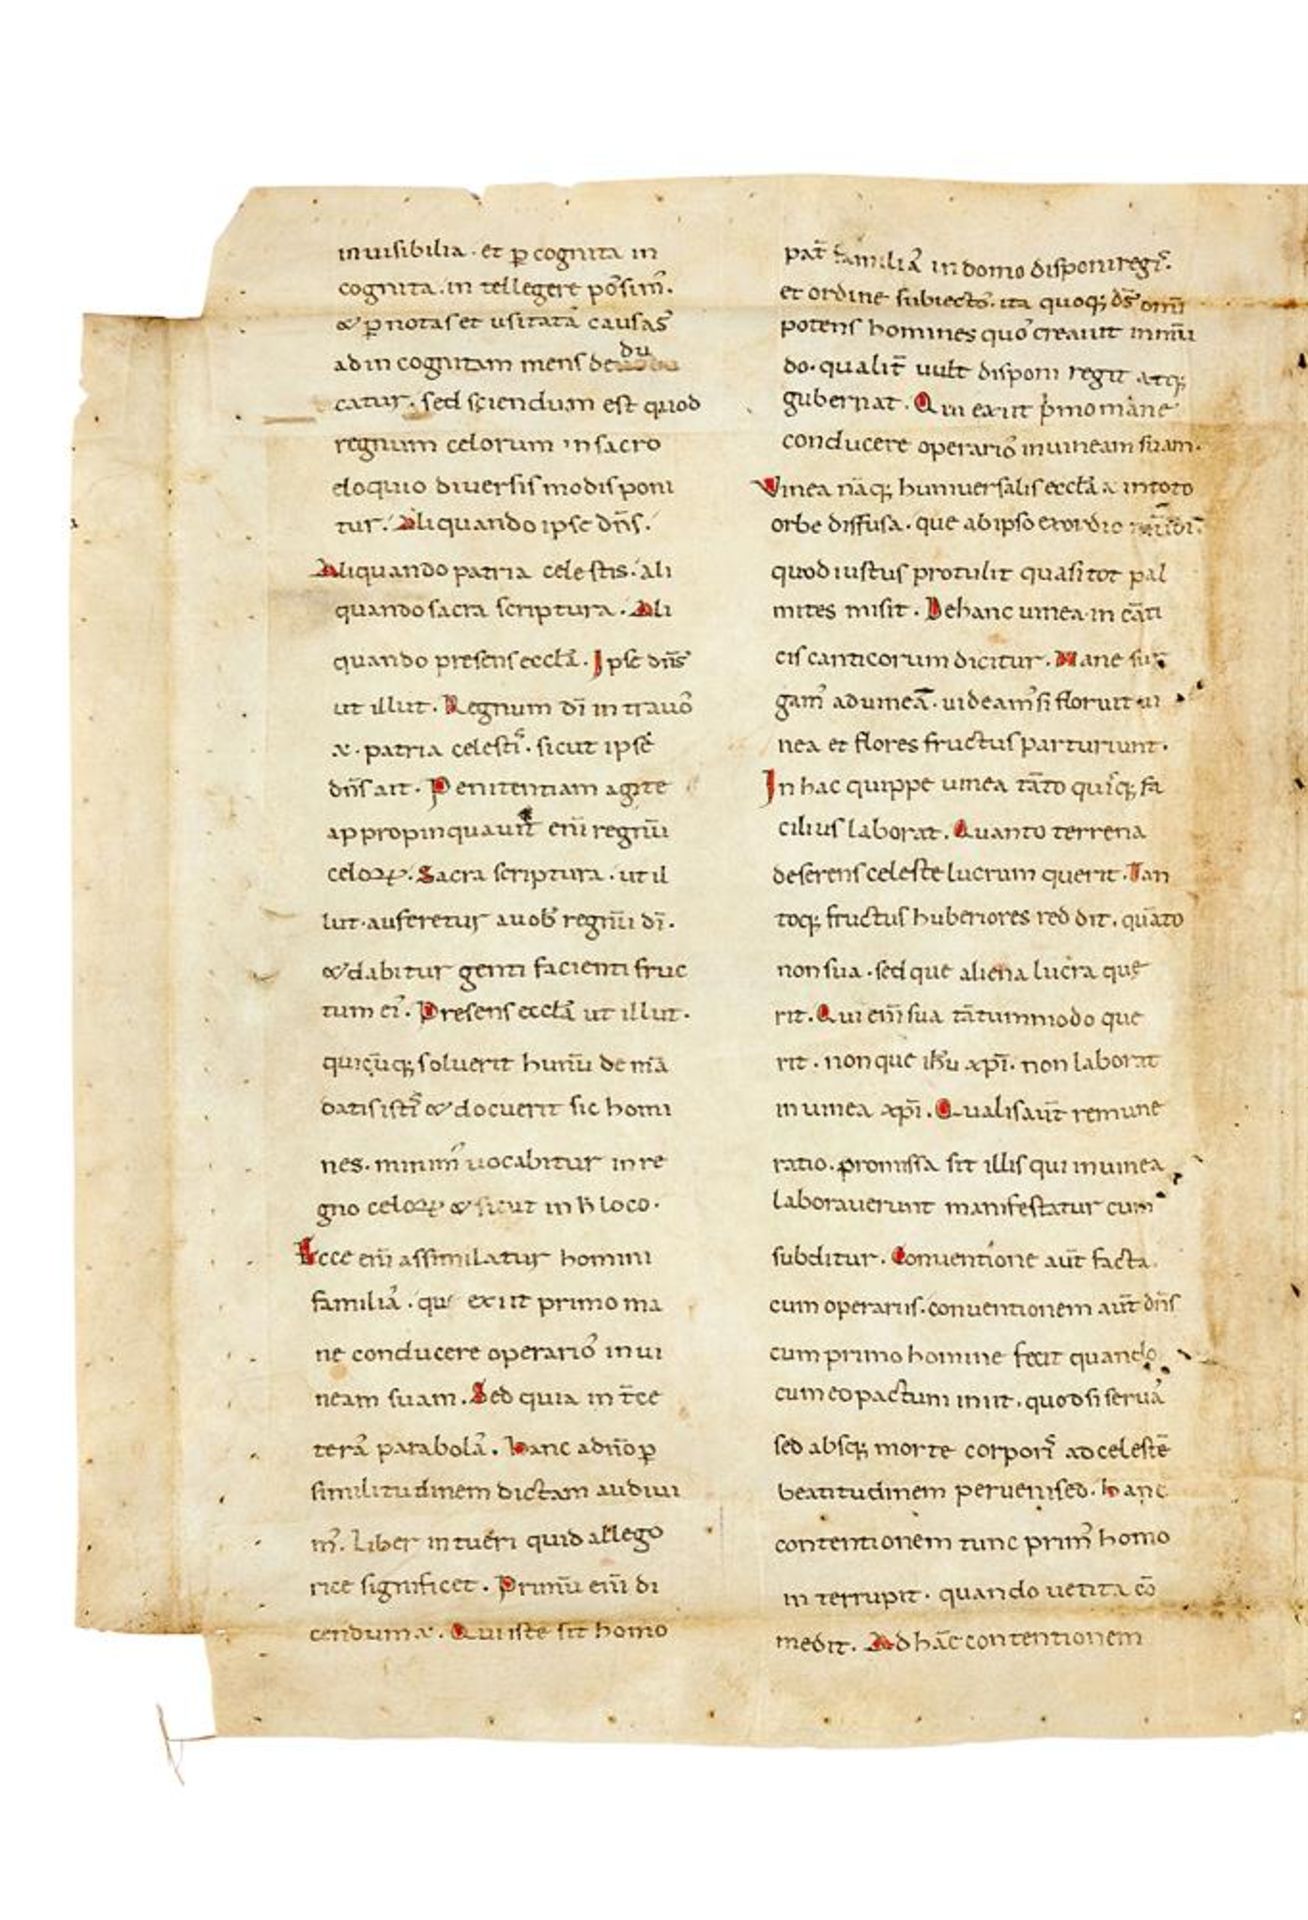 inuisibilia · et ꝑ cognita in
cognita · in tellegere poſ̉sim̅.
& ꝑ notas et usitatā causas
ad in cognitam mens de du
catur. sed sciendum est quod
regnum celorum in sacro
eloquio diuersis modis poni
tur. Aliquando ipse dn̅s.
Aliquando patria celestis. ali
quando sacra scriptura. Ali
quando presens eccl̅a. Ipse dn̅s
ut illut. Regnum dī in trauo᾿
÷. patria celesti᾿. sicut ipse
dn̅s ait. Penitentiam agite
appropinquauit̅ eni̅ regnū
celoꝝ. Sacra scriptura. ut il
lut. auferetur a uob᾿ regnū dī.
& dabitur genti facienti fruc
tum ei᾿. Presens eccl̅a ut illut.
quicūq; soluerit hunū de mā
datis isti᾿ & docuerit sic homi
nes. minim᾿ uocabitur in re
gno celoꝝ & sicut in h̅ loco.
Ecce eni̅ assimilatur homini
familia᾿. qui exiit primo ma
ne conducere operario᾿ in ui
neam suam. Sed quia in t̅ce
tera᾿ parabola᾿. hanc ad n̅o ꝑ
similitudinem dictam audiui
m᾿. liber intueri quid allego
rice significet. Primū eni̅ di
cendum ÷. Qui iste sit homo
pat̅ familia᾿ in domo disponi regi᾿.
et ordine subiecto᾿. ita quoq; ds̅ omi̅
potens homines quo᾿ creauit in mū
do. qualit̅ uult disponi regit atq;
gubernat. Qui exiit p̍mo mane
conducere operario᾿ in uineam suam.
Vinea nāq; huniuersalis eccl̅a ÷ in toto
orbe diffusa. que ab ipso exordio mūdi᾿
quod iustus protulit quasi tot pal
mites misit. De hanc uinea in cāti
cis canticorum dicitur. Mane sur
gam᾿ ad uineā. uideam᾿ si floruit ui
nea et flores fructus parturiunt.
In hac quippe uinea tāto quisq; fa
cilius laborat. Quanto terrena
deserens celeste lucrum querit. Tan
toq; fructus huberiores red dit. quāto
non sua. sed que aliena lucra que
rit. Qui eni̅ sua tātummodo que
rit. non que ihu̅ xpī. non laborat
in uinea xpī. Qualis aut̅ remune
ratio. promissa sit illis qui in uinea
laborauerunt manifestatur cum
subditur. Conuentione aut̅ facta.
cum operariis. conuentionem aut̅ dn̅s
cum primo homine fecit quando
cum eo pactum iniit. quod si serua᾿
sed absq; morte corpori᾿ ad celestē
beatitudinem peruenissed. hanc
contentionem tunc prim᾿ homo
in terrupit. quando uetita cō
medit. Ad hāc contentionem